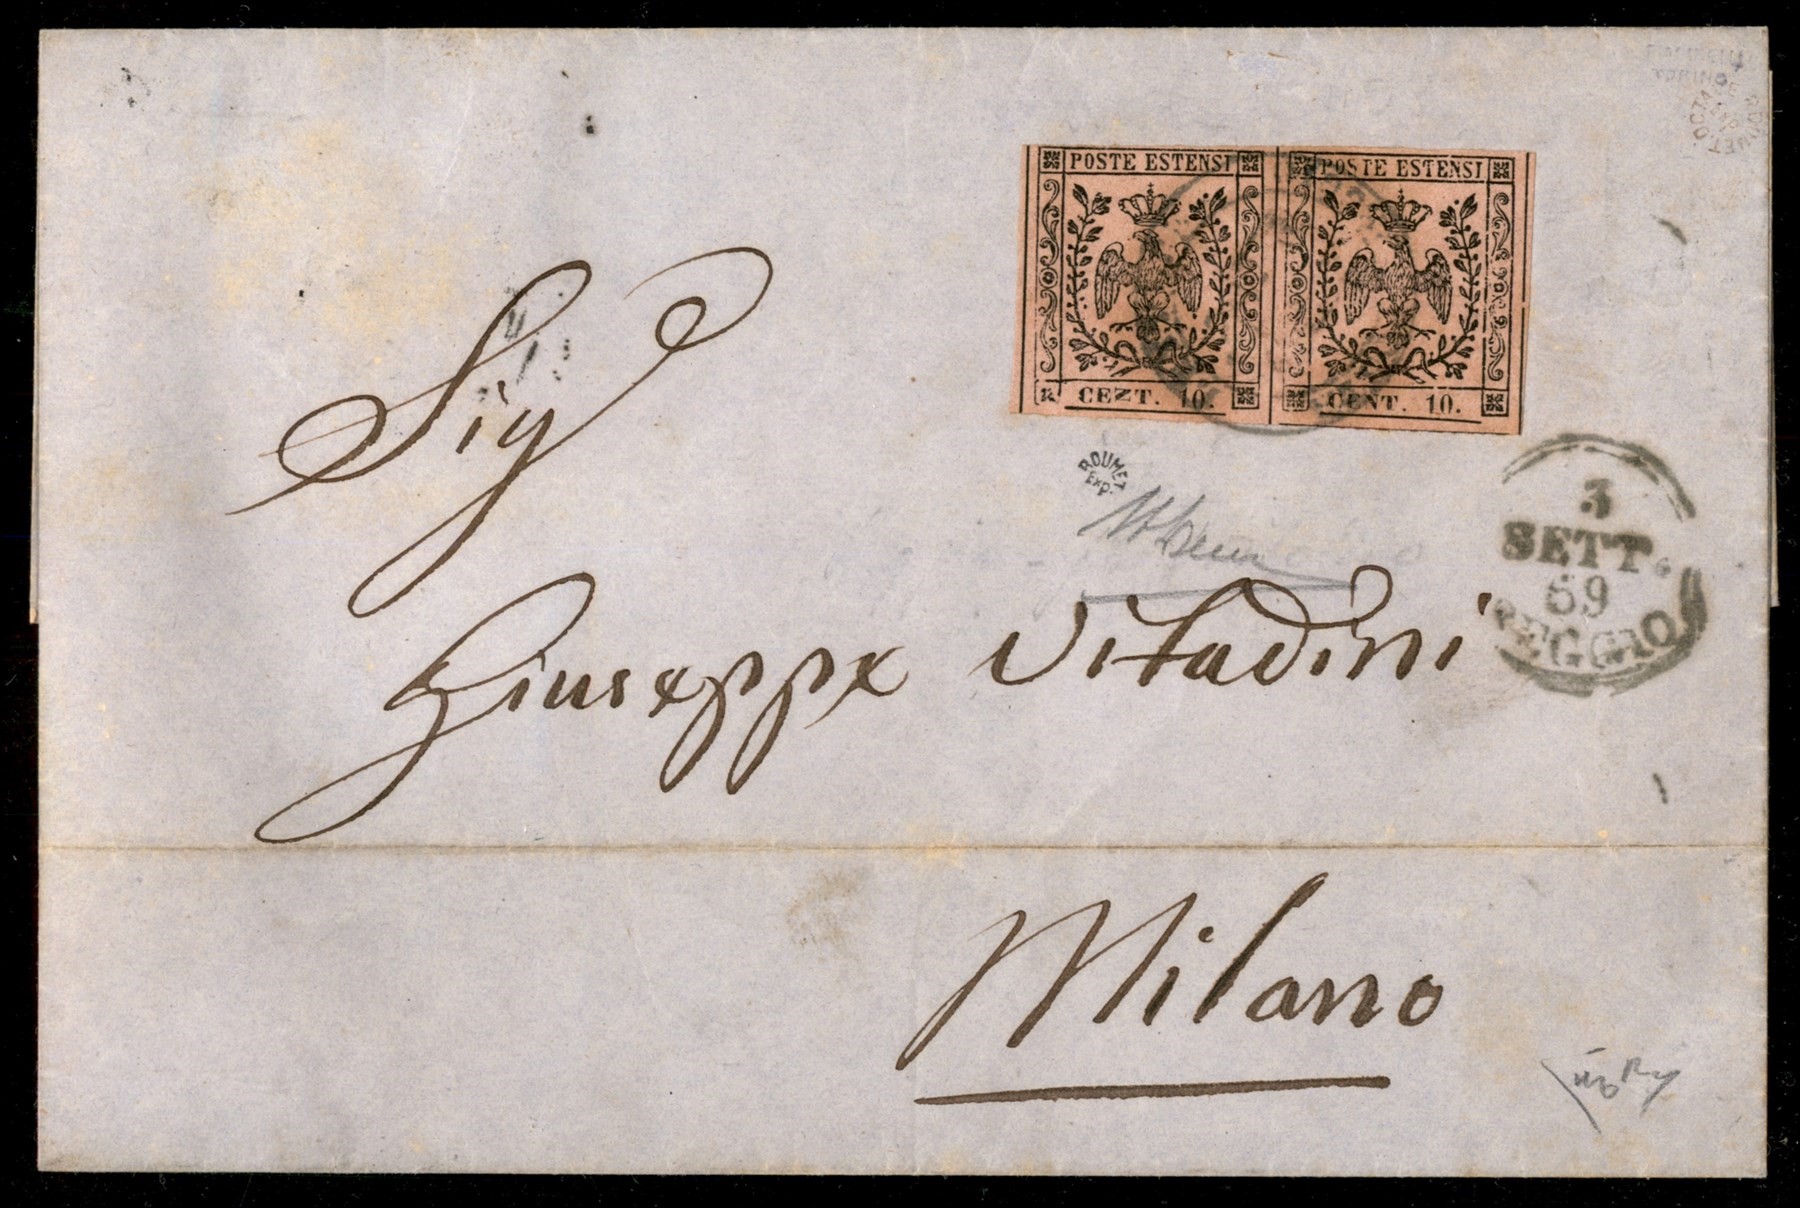 POSTE ESTENSI POSTE ESTENSI
CEZT. 10. CENT. 10.
ROUMET
Exp.
3
SETT.
59
REGGIO
Sig
Giuseppe Vitadini
Milano
TORINO